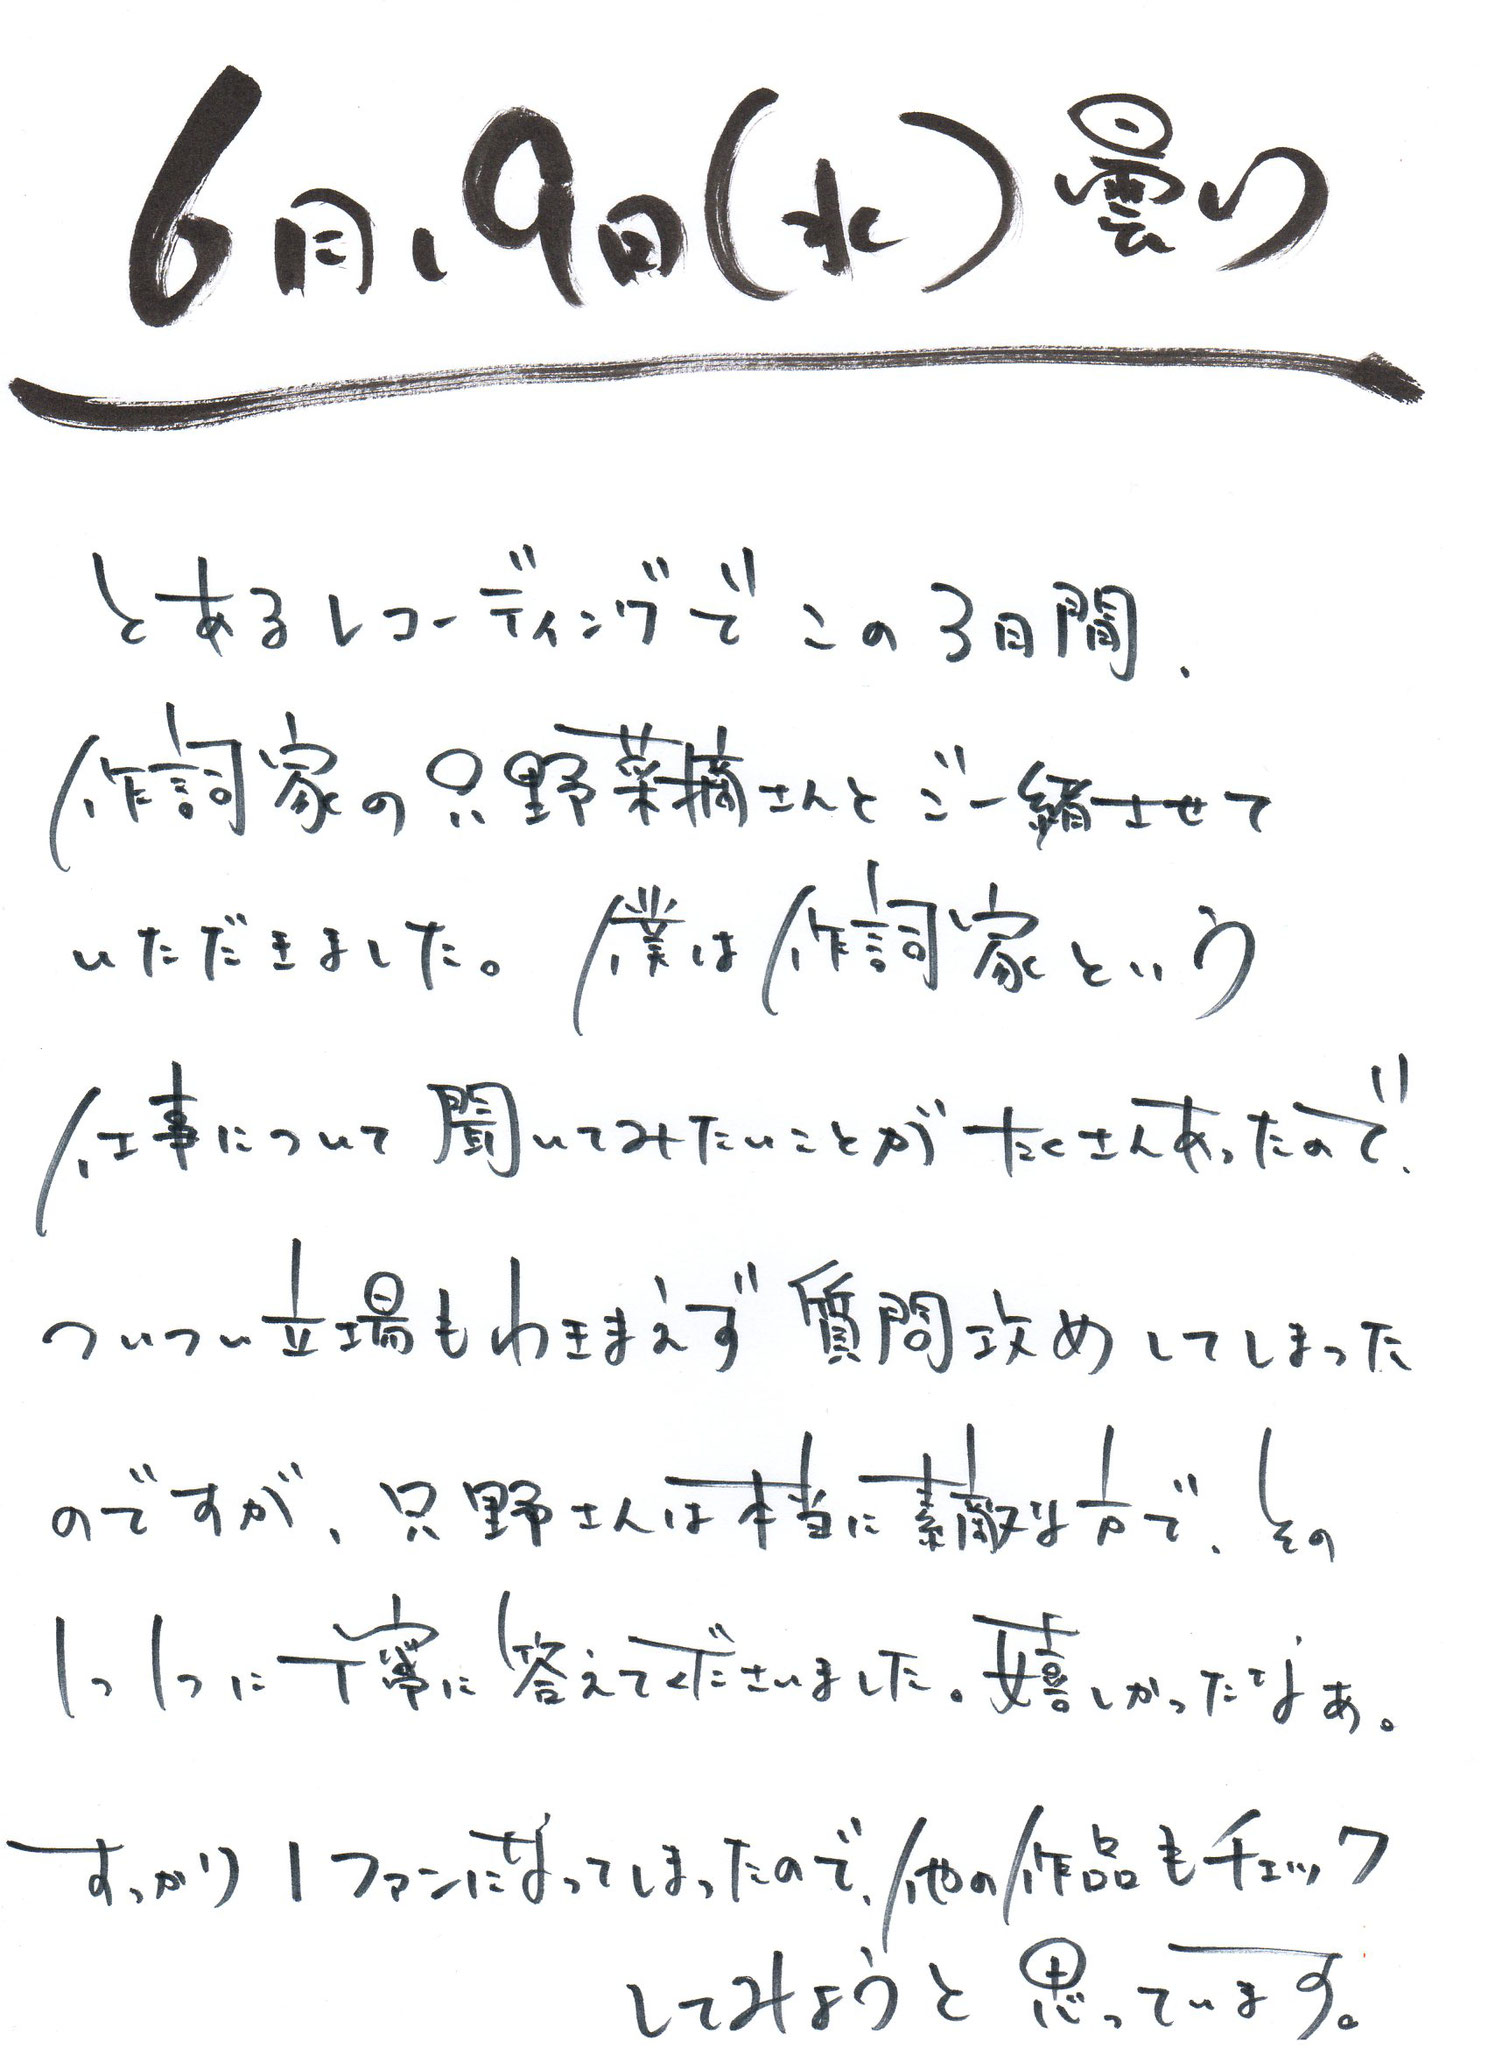 6月19日(水)曇り
とあるレコーディングでこの3日間、
作詞家の只野菜摘さんとご一緒させて
いただきました。僕は作詞家という
仕事について聞いてみたいことがたくさんあったので、
ついつい立場もわきまえず質問攻めしてしまった
のですが、只野さんは本当に素敵な方で、その
1つ1つに丁寧に答えてくださいました。嬉しかったなぁ。
すっかり1ファンになってしまったので、他の作品もチェック
してみようと思っています。